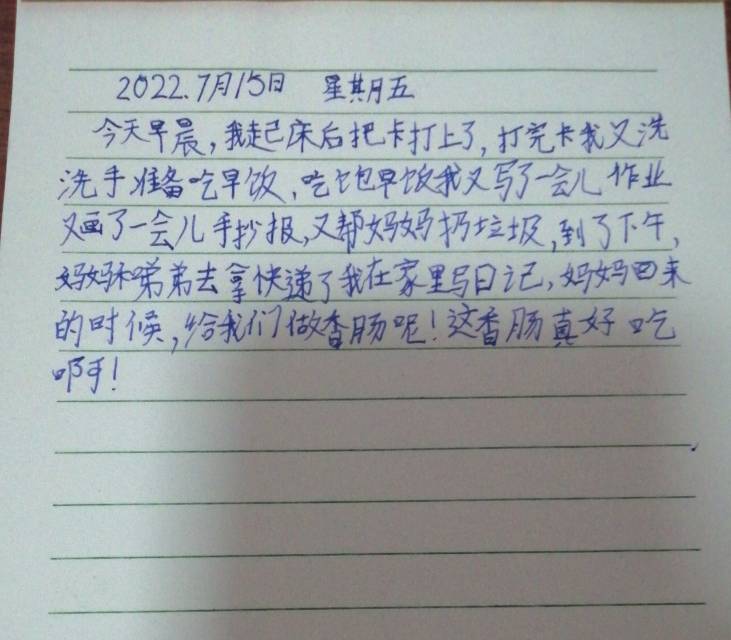 2022.7月15日 星期五
今天早晨,我起床后把卡打上了,打完卡我又洗
洗手准备吃早饭,吃饱早饭我又写了一会儿作业
又画了一会儿手抄报,又帮妈妈扔垃圾,到了下午,
妈妈和弟弟去拿快递了我在家里写日记,妈妈回来
的时候,给我们做香肠呢!这香肠真好吃
啊!